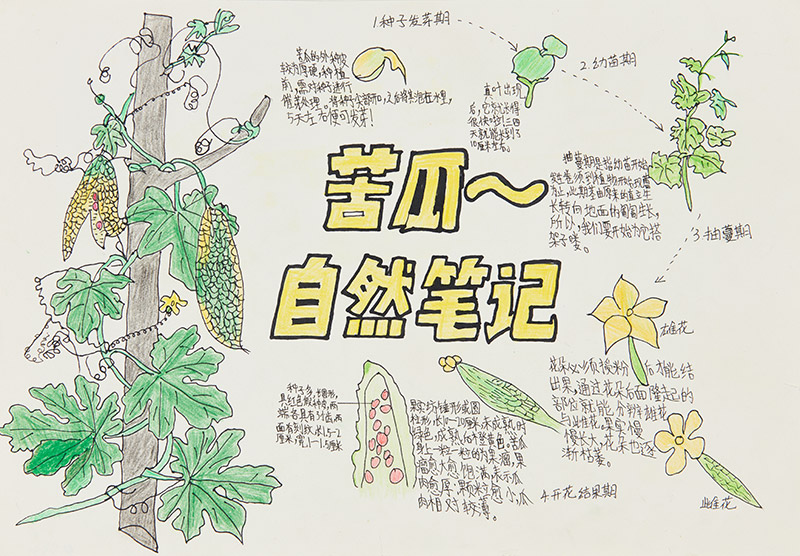 1种子发芽期
苦瓜的外种皮
较为厚硬,种植
前,需对种子进行
催芽处理。将种子尖部开口,之后将其泡在水里,
5天左右便可发芽!
真叶出现
后,它就长得
很快啦!三四
天就能长到了
10厘米左右。
2.幼苗期
抽蔓期是指幼苗开始
到植物开始现蕾
为止,此期苦瓜由原来的直立生
长转向地面的匍匐生长,
所以,我们要开始为它搭
架子喽。
3.抽蔓期
苦瓜~
自然笔记
雄花
花朵必须授粉后才能结
出果,通过花朵后面隆起的
部位就能分辨雄花
与雌花,果实慢
慢长大,花朵也逐
渐枯萎。
雌花
种子多,长圆形,
具红色假种皮,两
端各具3小齿,两
面有刻纹,长1.5-2
厘米,宽1-1.5厘米
果实纺锤形或圆
柱形,长10-20厘米,未成熟时
绿色,成熟后橙黄色,苦瓜
身上一粒一粒的为果瘤,果
瘤愈大愈饱满,表示瓜
肉愈厚,颗粒愈小,瓜
肉相对较薄。
4.开花结果期